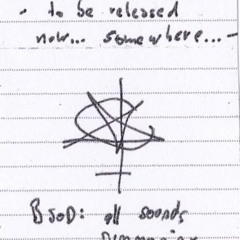 • to be released
now... somewhere...-
BSOD: all sounds